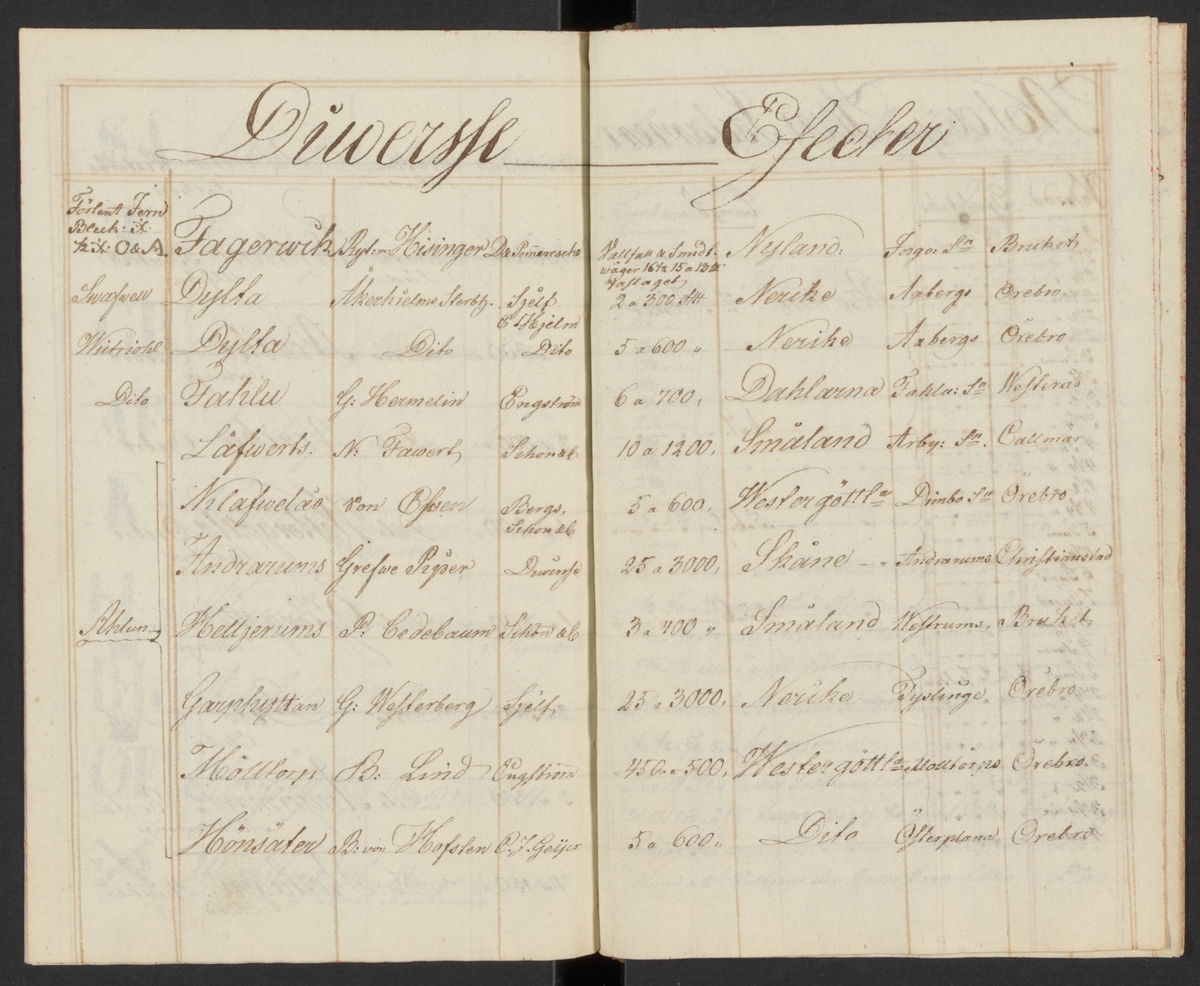 Diverse Efecter
Förtent Jern
Blech: X
½ X O & A. Fagerwik Ryt:m: Hisinger De Pommeresche Wallfatt. & Smidt. Nyland: Ingo: Sn Bruket
wäger 16½ 15 a 13 ℔
Swafwell Dylta Åkerhielms Sterbh. Sjelf 2 a 300 S℔ Nerike Axbergs Örebro
E Hjelm
Witriohl Dylta Dito Dito 5 a 600 " Nerike Axbergs Örebro
Dito Fahlu G: Hermelin Engström 6 a 700, Dahlarna Fahlu: Sn Westerås
Låfwerts. N: Fawert Schon &C 10 a 1200, Småland Arby: Sn. Callmar
Klafwelås von Essen Bergs, 5 a 600, Westergöttl: Dimbo Sn Örebro
Schon &C
Andrarums Grefwe Pijper Diverse 25 a 3000, Skåne " Andrarums Christianstad
Ahlun Helljerums P: Cedebaum Schön &C 3 a 400 " Småland Westrums, Bruket,
Garphyttan G: Westerberg Sjelf, 25 a 3000, Nerike Tyslinge Örebro
Mölltorp B: Lind Engström 450 a 500, Westergöttl: Molltorps Örebro.
Hönsäter B: von Hofsten C. J. Geijer 5 a 600 " Dito Österplana Örebro